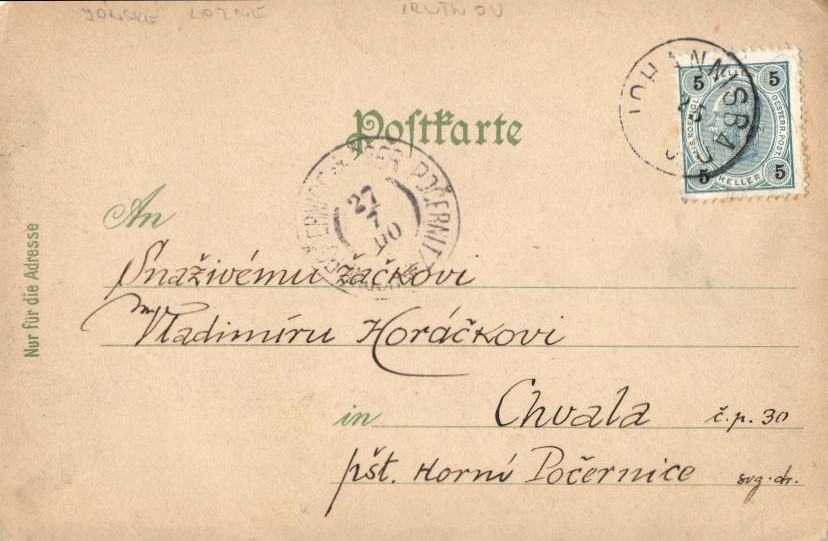 JÁNSKÉ LÁZNĚ TRUTNOV
JOHANNISBAD
5 5
OESTERR. POST
5 HELLER 5
Postkarte
POČERNITZ
27
7
00
An
Snaživému žáčkovi
Vladimíru Horáčkovi
in Chvala č.p. 30
pšt. Horní Počernice
Nur für die Adresse